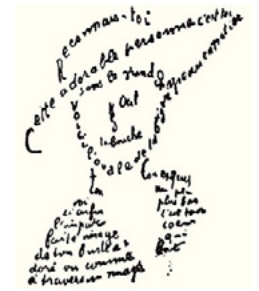 Reconnais-toi
Cette adorable personne c'est toi
sous le grand chapeau canotier
Oeil
la bouche
Voici l'ovale de ta figure
Ton
cou exquis
Voi
ci enfin
l'impar
faite image
de ton buste a
doré vu comme
à travers un nuage
un peu
plus bas
c'est ton
coeur
qui
bat